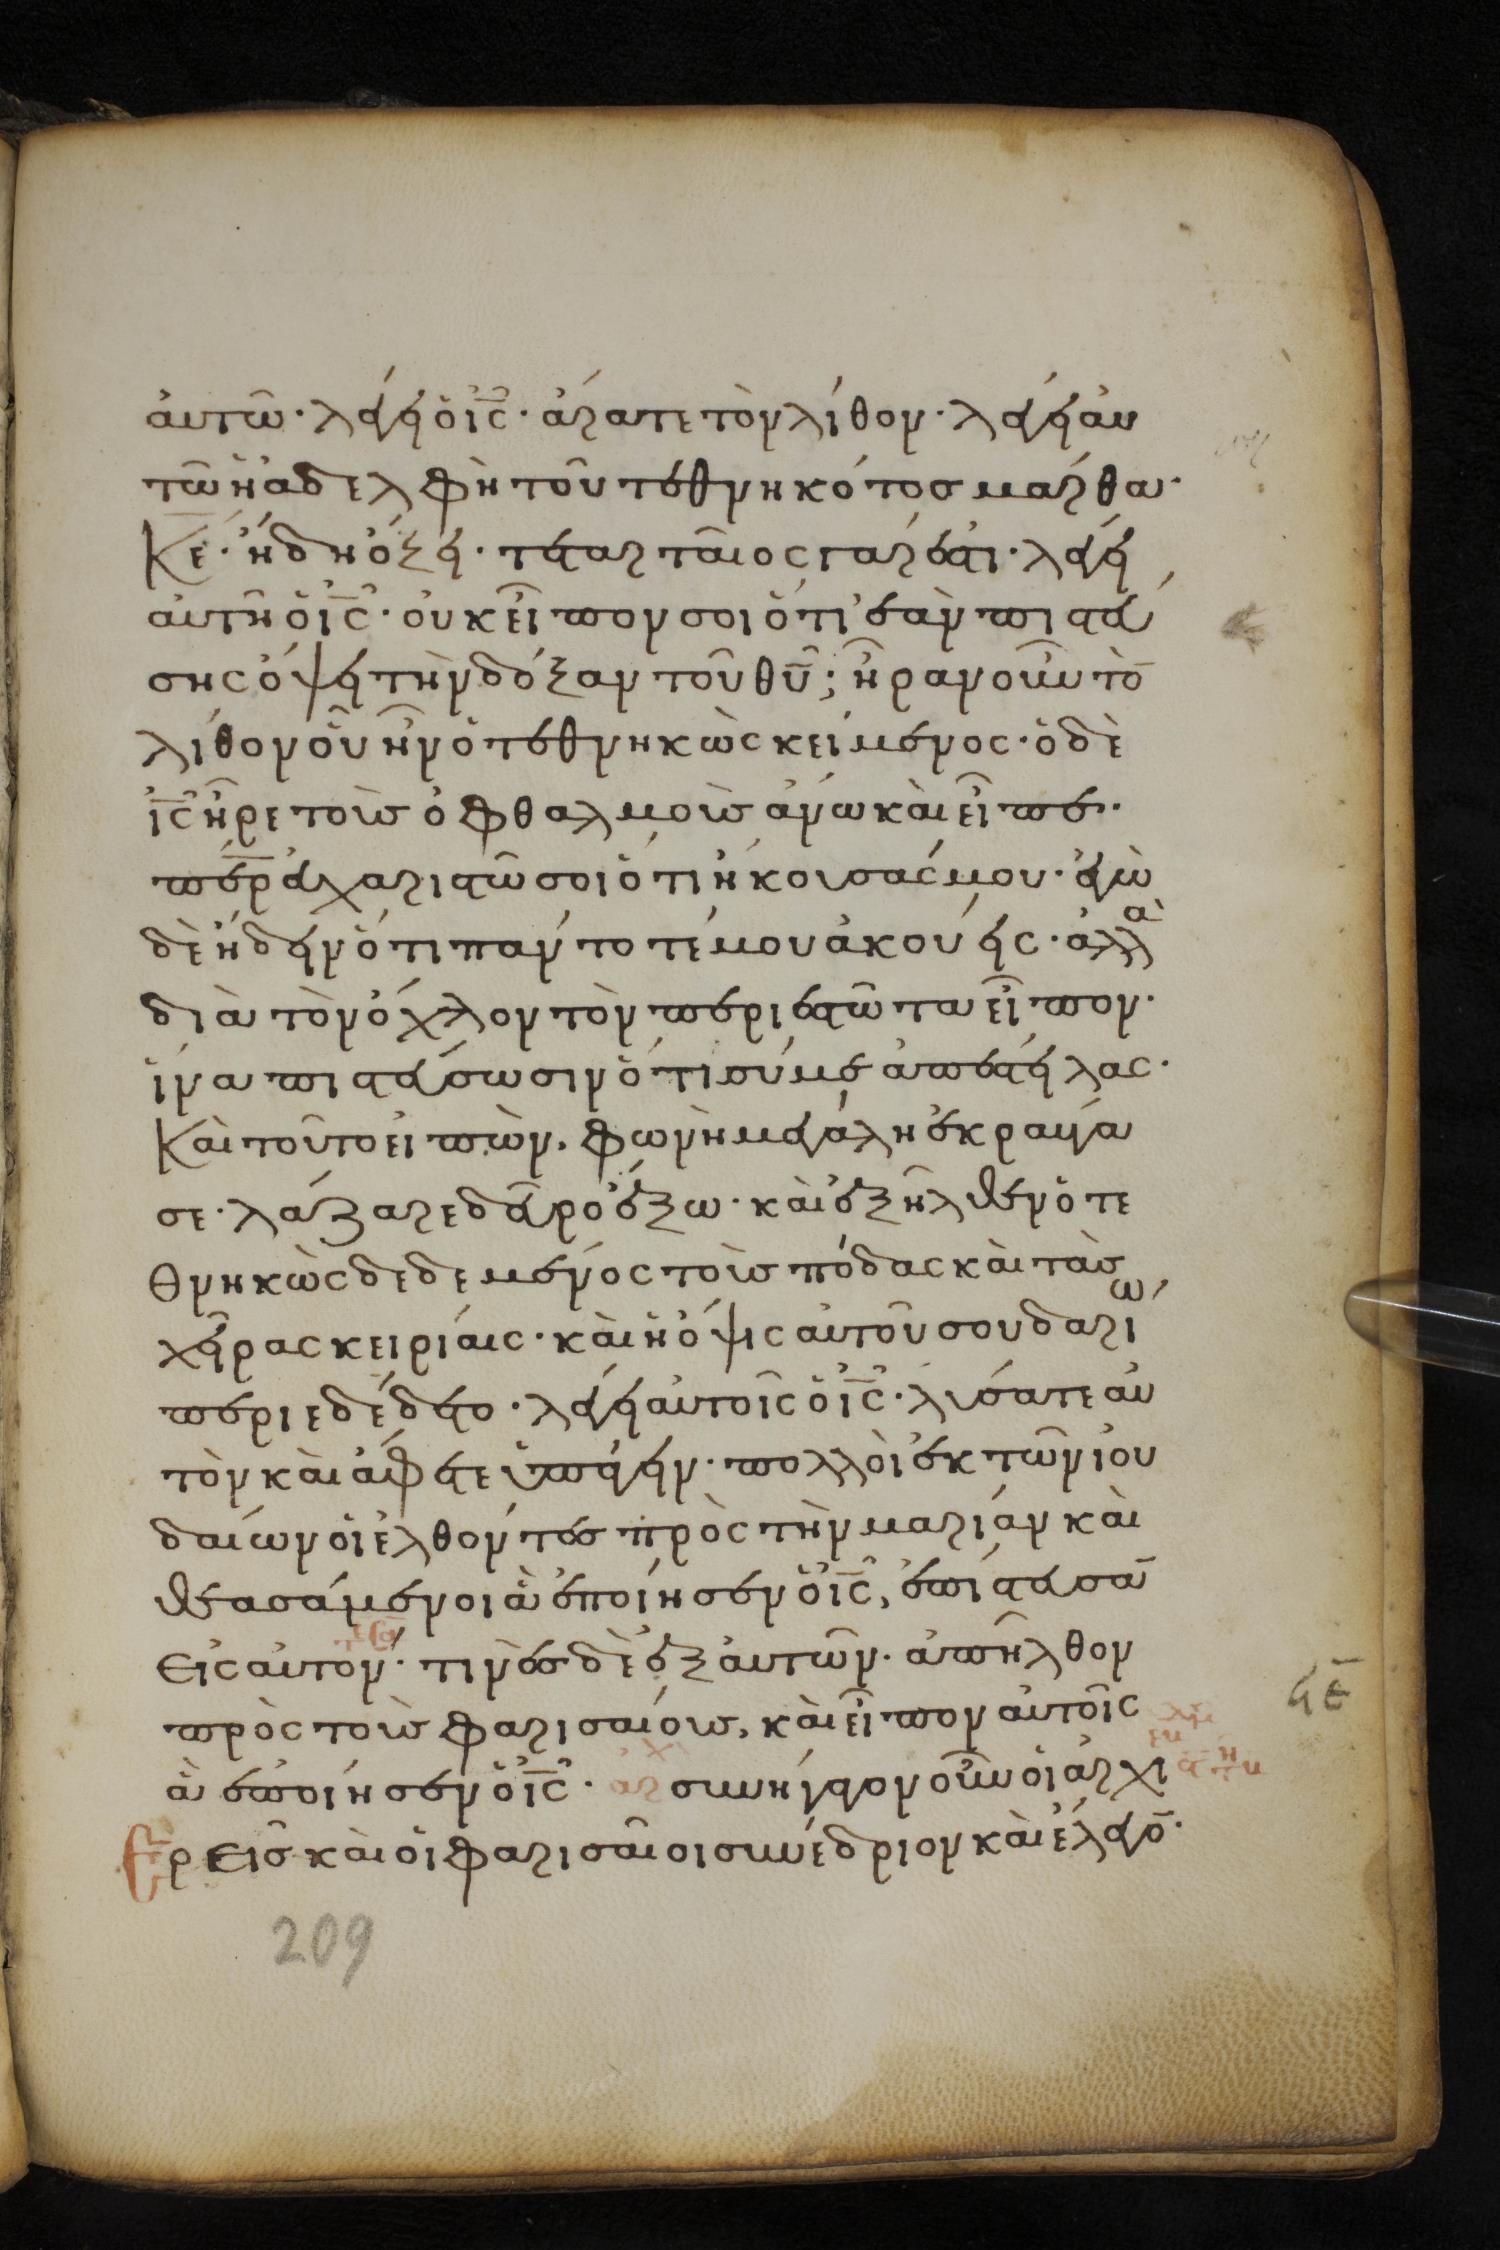 ἀυτῶ· λέγει ὁ ἰς̅· ἄρατε τὸν λίθον· λέγει ἀυ
τῶ ἡ ἀδελφὴ τοῦ τεθνηκότοσ μάρθα·
Κε̅· ἤδη ὄζει· τεταρταῖος γάρ ἐστι· λέγει
ἀυτῆ ὁ ἰς̅· ὀυκ εἶπον σοι ὅτι ἐὰν πιστεύ
σης ὄψει τὴν δόξαν τοῦ θυ̅; ἦραν οὖν τὸ̅
λίθον οὗ ἦν ὁ τεθνηκὼς κείμενος· ὁ δὲ
ἰς̅ ἦρε τοὺς ὀφθαλμοὺς ἄνω καὶ εἶπε·
πε̅ρ ἐυχαριστῶ σοι ὅτι ἤκουσάς μου· ἐγὼ
δὲ ἤδειν ὅτι πάντοτέ μου ἀκούεις· ἀλλὰ
διὰ τὸν ὄχλον τὸν περιεστῶτα εἶπον·
ἵνα πιστεύσωσιν ὅτι σύ με ἀπέστειλας·
Καὶ τοῦτο εἰπὼν, φωνὴ μεγάλη ἐκραύγα
σε· λάζαρε δεῦρο ἔξω· καὶ ἐξῆλθεν ὁ τε
θνηκὼς δεδεμένος τοὺς πόδας καὶ τὰς
χεῖρας κειρίαις· καὶ ἡ ὄψις ἀυτοῦ σουδαρίω
περιεδέδετο· λέγει ἀυτοῖς ὁ ἰς̅· λύσατε ἀυ
τὸν καὶ ἄφετε ὑπάγειν· πολλοὶ ἐκ τῶν ἰου
δαίων οἱ ἐλθόντεσ πρὸς τὴν μαρίαν καὶ
θεασάμενοι ἃ ἐποίησεν ὁ ἰς̅, ἐπίστευσα̅
Εἰς ἀυτόν· τινὲσ δὲ ἐξ ἀυτῶν· ἀπῆλθον
πρὸς τοὺς φαρισαίους, καὶ εἶπον ἀυτοῖς
ἃ ἐποίησεν ὁ ἰς̅· αρχ συνήγαγον οὖν οἱ ἀρχι
ερΕῖσ καὶ οἱ φαρισαῖοι συνέδριον καὶ ἔλεγο̅·
209